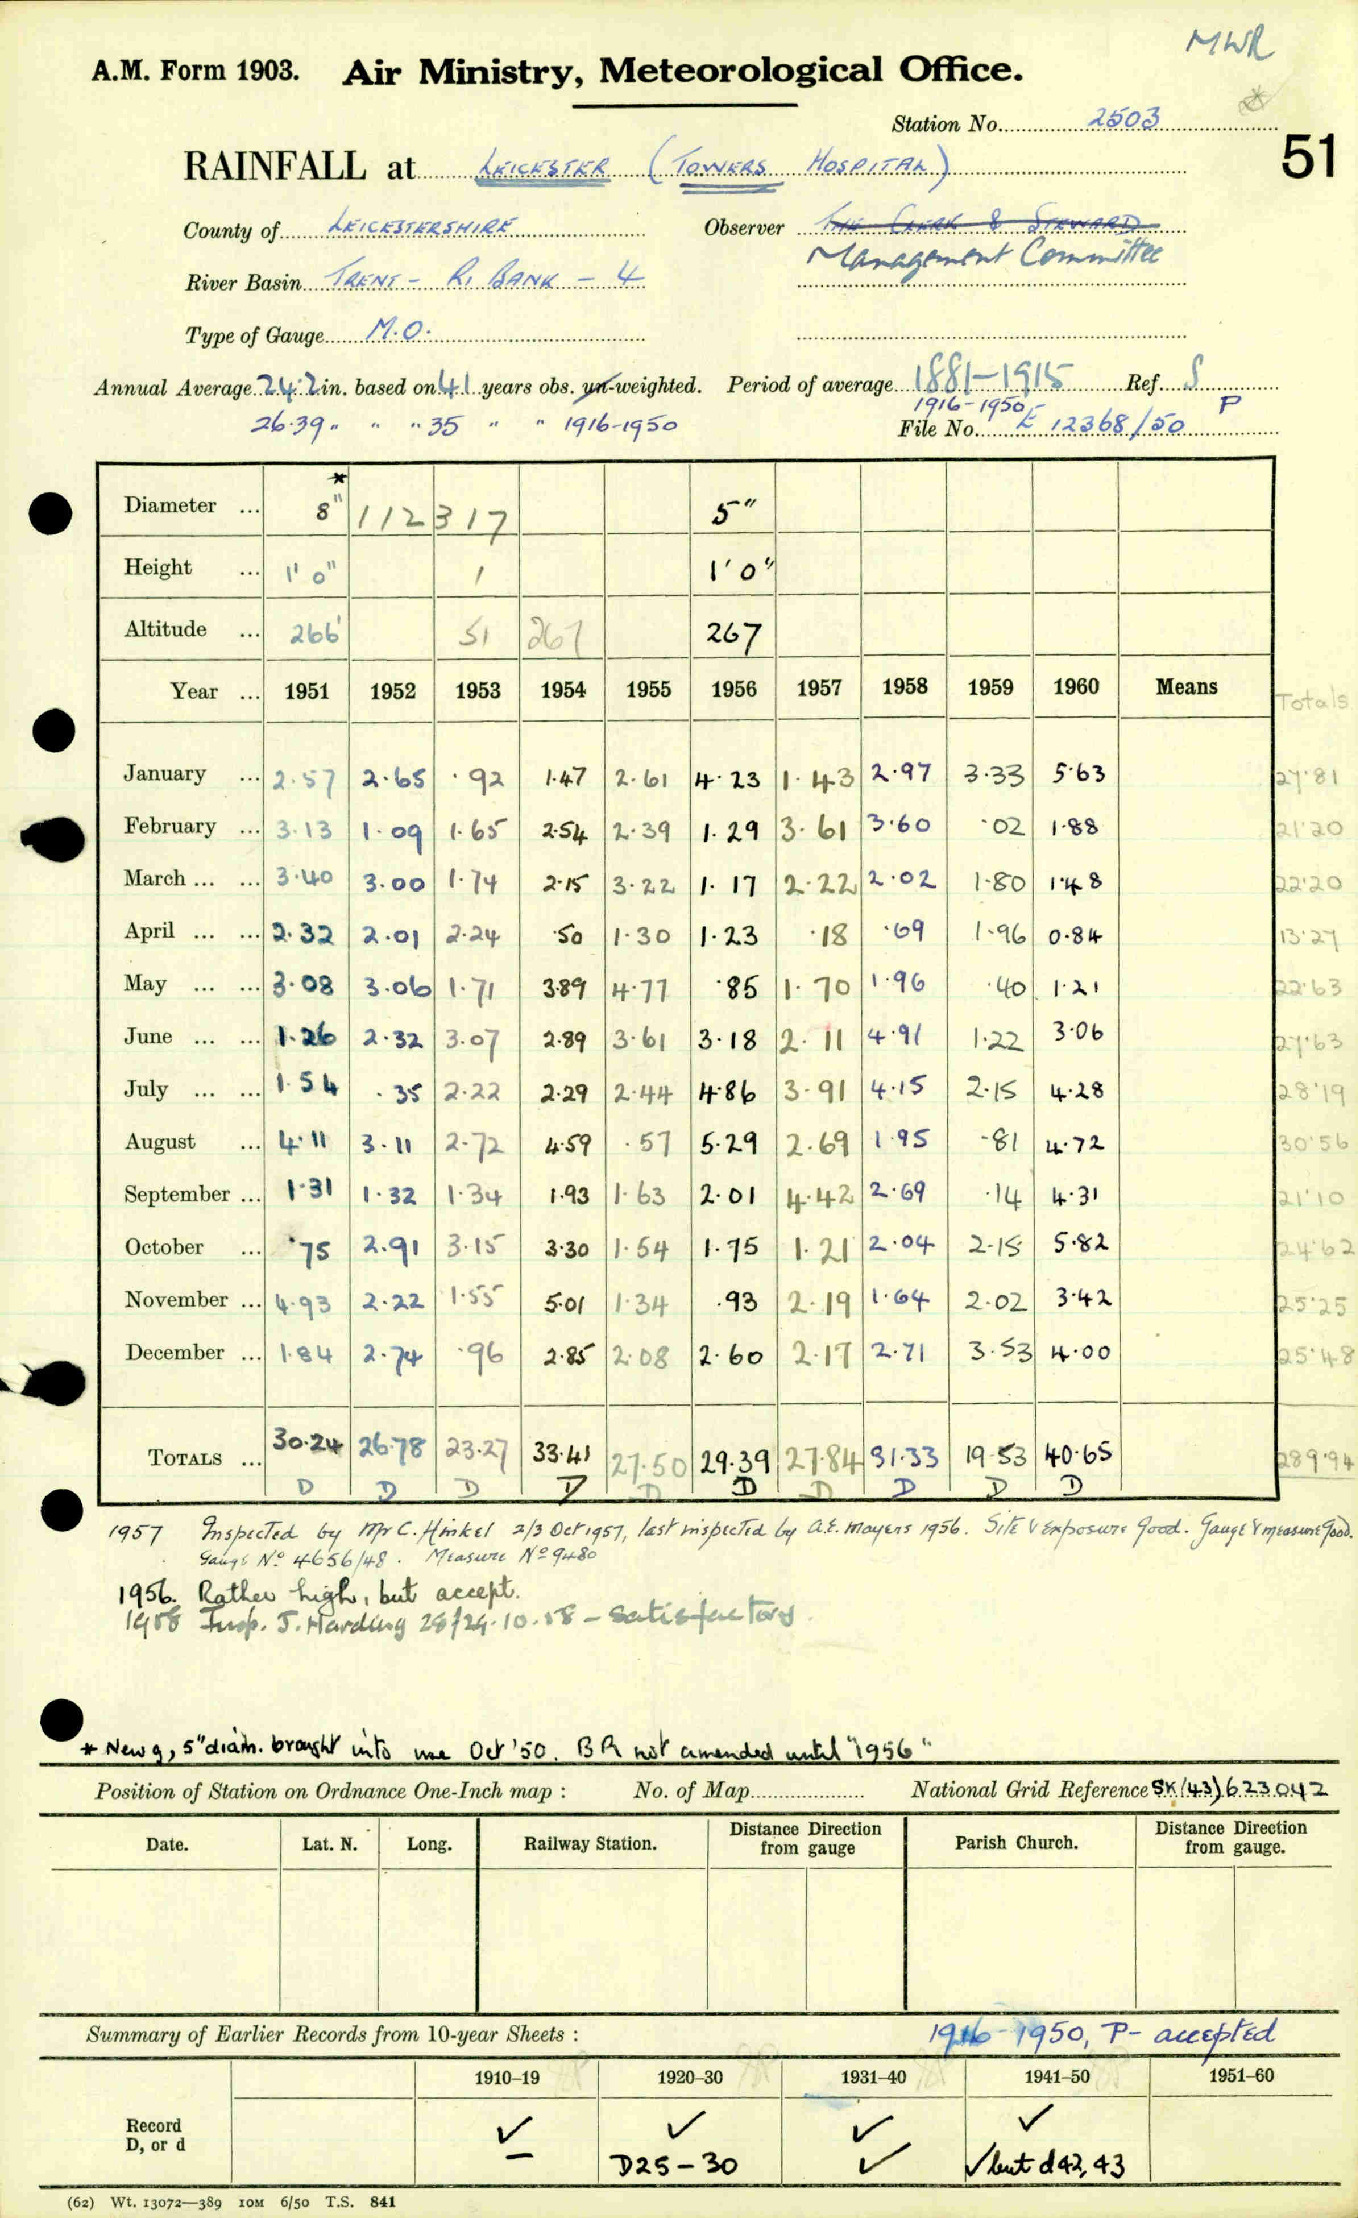 MWR
A.M. Form 1903. Air Ministry, Meteorological Office.
Station No. 2503
51
RAINFALL at LEICESTER (TOWERS HOSPITAL)
County of LEICESTERSHIRE Observer THE CLERK & STEWARD
Management Committee
River Basin TRENT - R. BANK - 4
Type of Gauge M.O.
Annual Average 24.2 in. based on 41 years obs. un-weighted. Period of average 1881-1915 Ref. S
1916-1950 P
26.39 " " " 35 " " 1916-1950 File No. E 12368/50
Diameter ... 8" * 112317 5"
Height ... 1' 0" 1 1' 0"
Altitude ... 266' 51 267 267
Year ... 1951 1952 1953 1954 1955 1956 1957 1958 1959 1960 Means Totals
January ... 2.57 2.65 .92 1.47 2.61 4.23 1.43 2.97 3.33 5.63 27.81
February ... 3.13 1.09 1.65 2.54 2.39 1.29 3.61 3.60 .02 1.88 21.20
March ... ... 3.40 3.00 1.74 2.15 3.22 1.17 2.22 2.02 1.80 1.48 22.20
April ... ... 2.32 2.01 2.24 .50 1.30 1.23 .18 .69 1.96 0.84 13.27
May ... ... 3.08 3.06 1.71 3.89 4.77 .85 1.70 1.96 .40 1.21 22.63
June ... ... 1.26 2.32 3.07 2.89 3.61 3.18 2.11 4.91 1.22 3.06 27.63
July ... ... 1.54 .35 2.22 2.29 2.44 4.86 3.91 4.15 2.15 4.28 28.19
August ... 4.11 3.11 2.72 4.59 .57 5.29 2.69 1.95 .81 4.72 30.56
September ... 1.31 1.32 1.34 1.93 1.63 2.01 4.42 2.69 .14 4.31 21.10
October ... .75 2.91 3.15 3.30 1.54 1.75 1.21 2.04 2.15 5.82 24.62
November ... 4.93 2.22 1.55 5.01 1.34 .93 2.19 1.64 2.02 3.42 25.25
December ... 1.84 2.74 .96 2.85 2.08 2.60 2.17 2.71 3.53 4.00 25.48
TOTALS ... 30.24 26.78 23.27 33.41 27.50 29.39 27.84 31.33 19.53 40.65 289.94
D D D D D D D D D D
1957 Inspected by Mr C. Hinkel 2/3 Oct 1957, last inspected by A.E. Mayers 1956. Site & exposure good. Gauge & measure good.
Gauge No 4656/48. Measure No 9480
1956. Rather high, but accept.
1958 Insp. J. Harding 28/29.10.58 - satisfactory
* New g, 5" diam. brought into use Oct '50. BR not amended until "1956"
Position of Station on Ordnance One-Inch map : No. of Map National Grid Reference SK(43)623042
Date. Lat. N. Long. Railway Station. Distance from Direction gauge Parish Church. Distance from Direction gauge.
Summary of Earlier Records from 10-year Sheets : 1916-1950, P- accepted
1910-19 1920-30 1931-40 1941-50 1951-60
Record ✓ ✓ ✓ ✓
D, or d — D25-30 ✓ ✓ but d 42, 43
(62) Wt. 13072—389 10M 6/50 T.S. 841